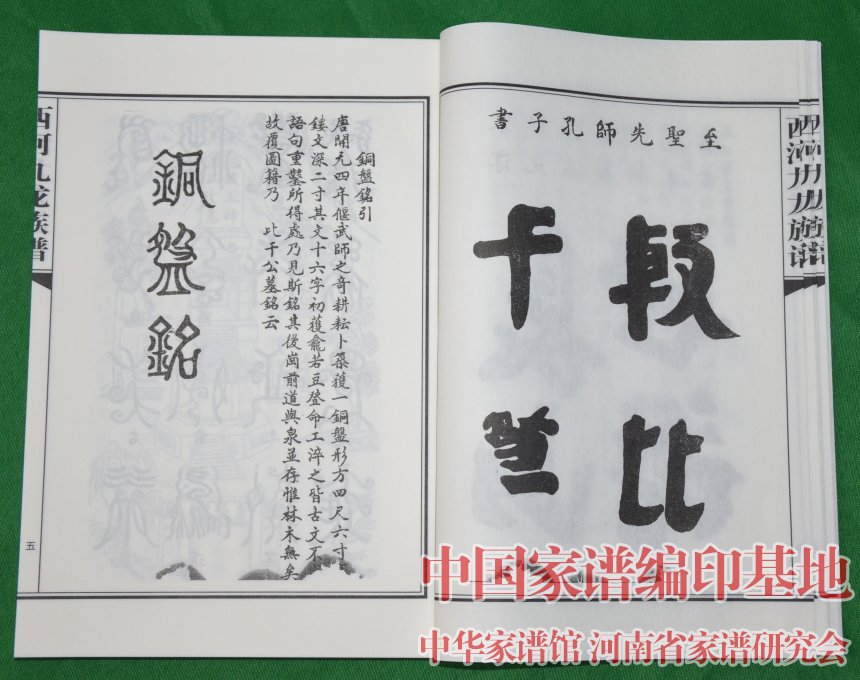 至聖先師孔子書
殷比
干莫
銅盤銘引
唐開元四年偃武師之奇耕耘卜築獲一銅盤形方四尺六寸
鏤文深二寸其文十六字初獲龕若豆登命工淬之皆古文不
語句重鑿所得處乃見斯銘其後崗前道與泉並存惟林木無矣
故覆圖籍乃 比干公墓銘云
銅盤銘
西河九龙族谱
五
中国家谱编印基地
中华家谱馆 河南省家谱研究会